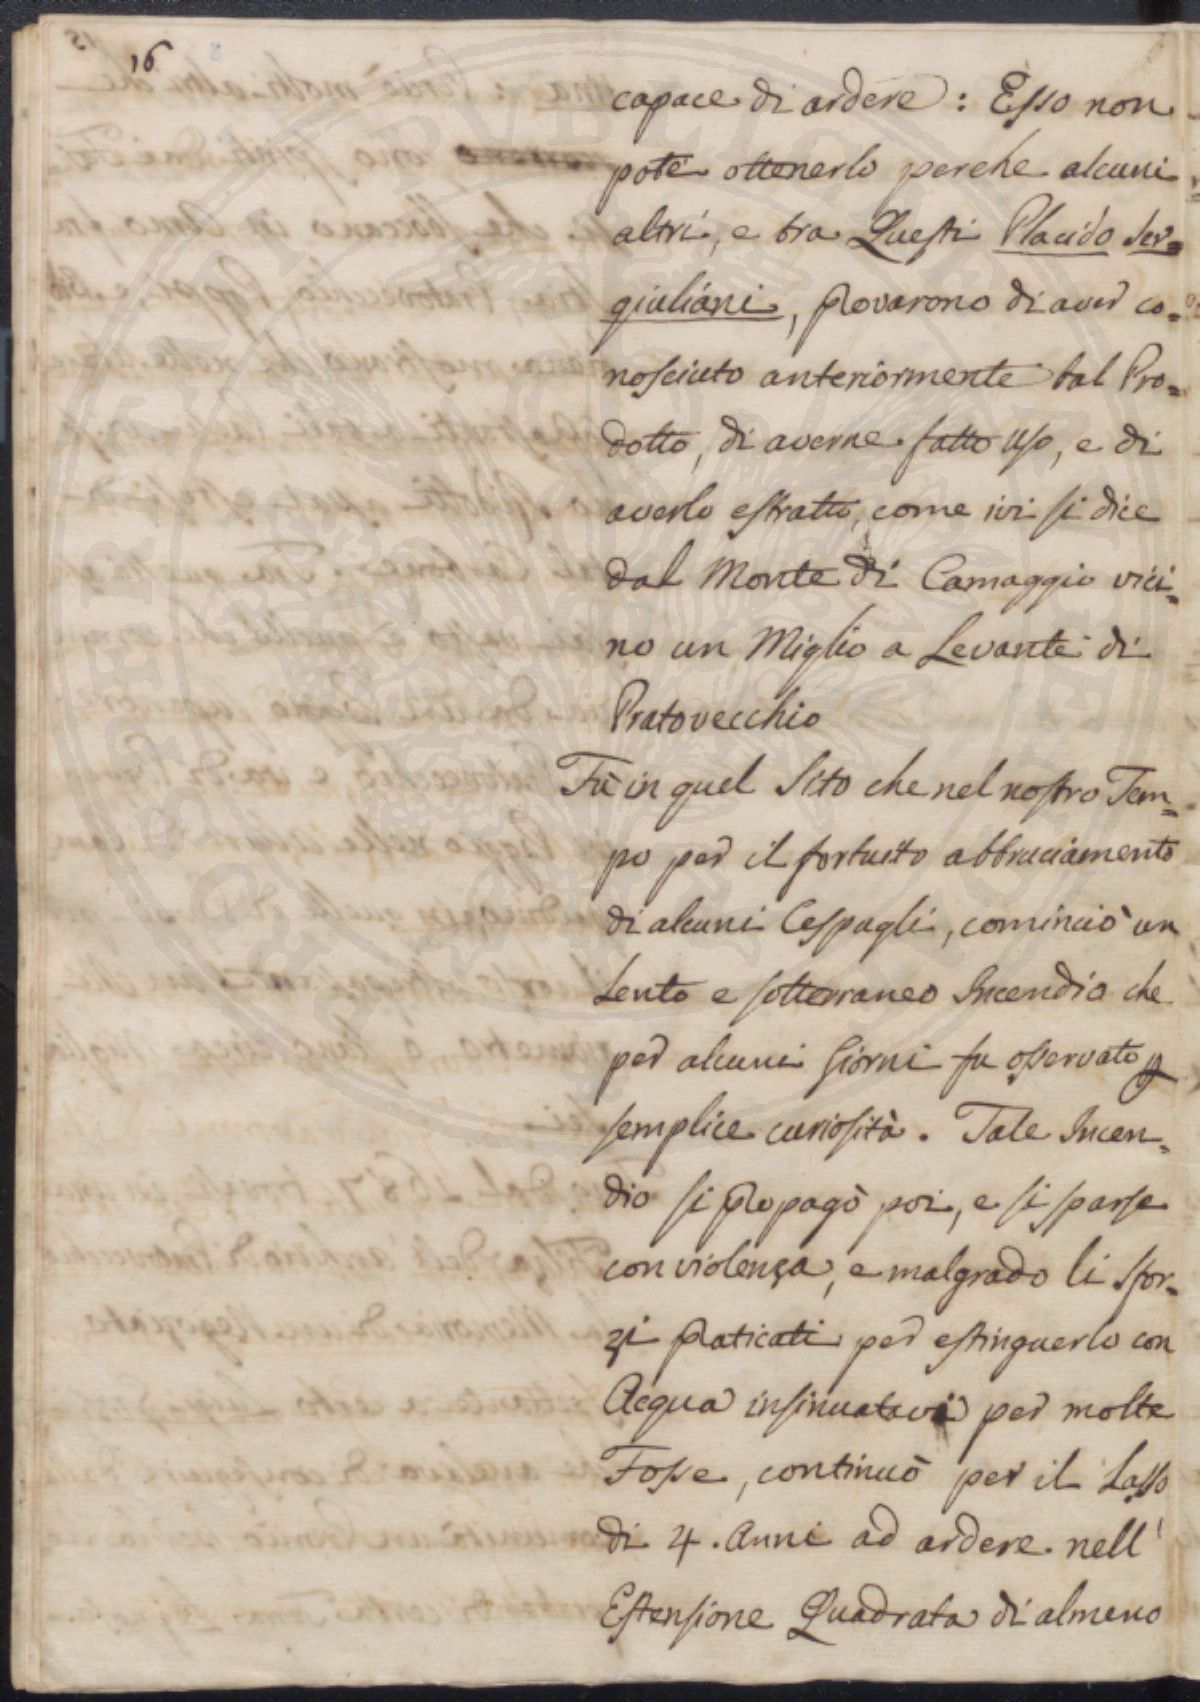 16
capace di ardere: Esso non
poté ottenerlo perche alcuni
altri, e tra Questi Placido Ser=
giuliani, provarono di aver co=
nosciuto anteriormente tal Pro=
dotto, di averne fatto uso, e di
averlo estratto, come ivi si dice
dal Monte di Camaggio vici=
no un Miglio a Levante di
Pratovecchio
Fù in quel Sito che nel nostro Tem=
po per il fortuito abbruciamento
di alcuni Cespagli, cominciò un
Lento e sotterraneo Incendio che
per alcuni Giorni fu osservato p
semplice curiosità. Tale Incen=
dio si propagò poi, e si sparse
con violenza, e malgrado li sfor=
zi praticati per estinguerlo con
Acqua insinuatavi per molte
Fosse, continuò per il Lasso
di 4. Anni ad ardere nell'
Estensione Quadrata di almeno